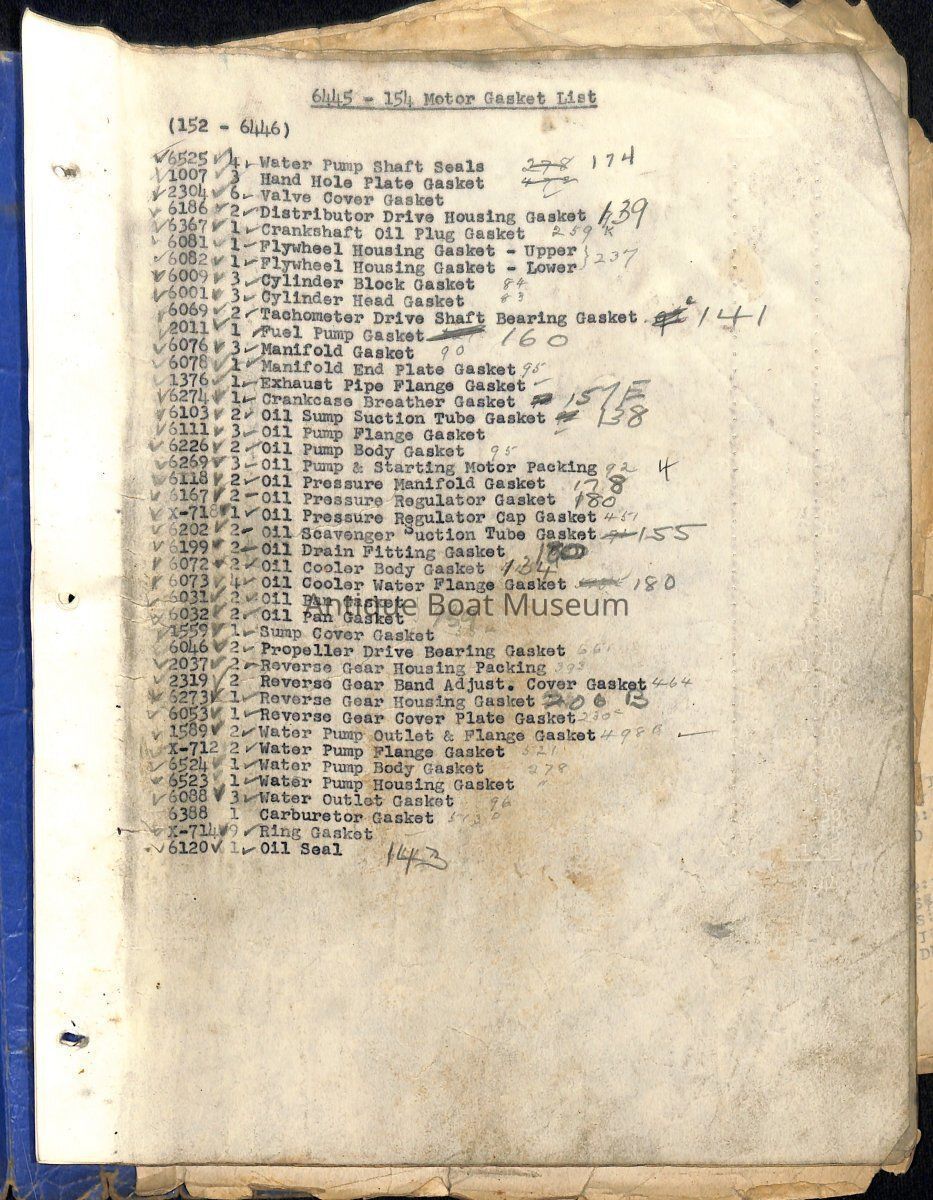 6445 - 154 Motor Gasket List
(152 - 6446)
✓6525 ✓ 4 ✓ Water Pump Shaft Seals 278 174
✓1007 ✓ 3 Hand Hole Plate Gasket
✓2304 ✓ 6 ✓ Valve Cover Gasket
✓6186 ✓ 2 ✓ Distributor Drive Housing Gasket 139
✓6367 ✓ 1 ✓ Crankshaft Oil Plug Gasket 259 K
✓6081 ✓ 1 ✓ Flywheel Housing Gasket - Upper } 237
✓6082 ✓ 1 ✓ Flywheel Housing Gasket - Lower
✓6009 ✓ 3 ✓ Cylinder Block Gasket 84
✓6001 ✓ 3 ✓ Cylinder Head Gasket 83
✓6069 ✓ 2 ✓ Tachometer Drive Shaft Bearing Gasket 141
✓2011 ✓ 1 ✓ Fuel Pump Gasket 160
✓6076 ✓ 3 ✓ Manifold Gasket 90
✓6078 ✓ 1 ✓ Manifold End Plate Gasket 95
✓1376 ✓ 1 ✓ Exhaust Pipe Flange Gasket -
✓6274 ✓ 1 ✓ Crankcase Breather Gasket 157 E
✓6103 ✓ 2 ✓ Oil Sump Suction Tube Gasket 138
✓6111 ✓ 3 ✓ Oil Pump Flange Gasket
✓6226 ✓ 2 ✓ Oil Pump Body Gasket 95
✓6269 ✓ 3 ✓ Oil Pump & Starting Motor Packing 92 4
✓6118 ✓ 2 ✓ Oil Pressure Manifold Gasket 178
✓6167 ✓ 2 ✓ Oil Pressure Regulator Gasket 180
✓X-718 ✓ 1 ✓ Oil Pressure Regulator Cap Gasket 451
✓6202 ✓ 2 ✓ Oil Scavenger Suction Tube Gasket 155
✓6199 ✓ 2 ✓ Oil Drain Fitting Gasket
✓6072 ✓ 2 ✓ Oil Cooler Body Gasket 134
✓6073 ✓ 4 ✓ Oil Cooler Water Flange Gasket 180
✓6031 ✓ 2 ✓ Oil Pan Gasket
Antique Boat Museum
✓6032 ✓ 2 ✓ Oil Pan Gasket
✓1559 ✓ 1 ✓ Sump Cover Gasket
✓6046 ✓ 2 ✓ Propeller Drive Bearing Gasket
✓2037 ✓ 2 ✓ Reverse Gear Housing Packing 393
✓2319 ✓ 2 Reverse Gear Band Adjust. Cover Gasket 464
✓6273 ✓ 1 ✓ Reverse Gear Housing Gasket 206 B
✓6053 ✓ 1 ✓ Reverse Gear Cover Plate Gasket
✓1589 ✓ 2 ✓ Water Pump Outlet & Flange Gasket 498B
✓X-712 2 ✓ Water Pump Flange Gasket 521
✓6524 ✓ 1 ✓ Water Pump Body Gasket 278
✓6523 ✓ 1 ✓ Water Pump Housing Gasket "
✓6088 ✓ 3 ✓ Water Outlet Gasket 96
6388 1 Carburetor Gasket
✓X-714 ✓ 9 ✓ Ring Gasket
✓6120 ✓ 1 ✓ Oil Seal 143